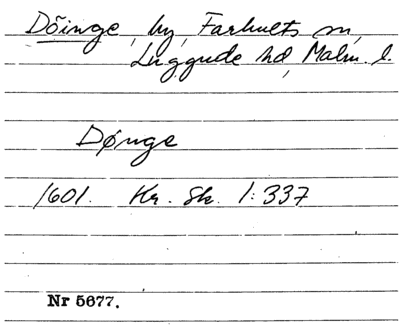 Döinge, by, Farhults sn,
Luggude hd, Malm. l.
Dønge
1601. Kr. Sk. 1:337
Nr 5677.